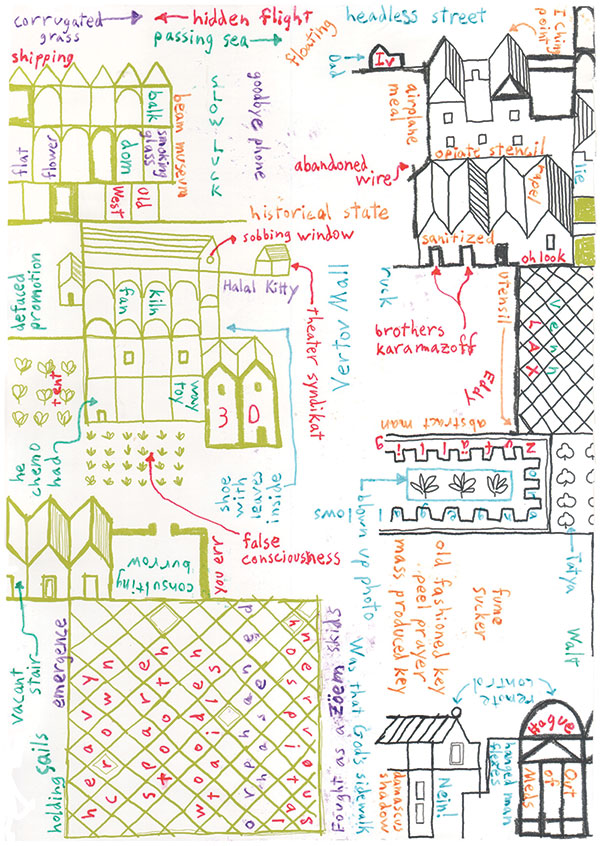 corrugated grass
hidden flight
passing sea
headless street
shipping
floating
Dad
IV
I Ching point
airplane meal
goodbye phone
SLOW LUCK
beam museum
balk
smoking glass
dom
flower
flat
West
old
opiate stencil
abandoned wire
lie
historical state
sobbing window
sanitized
oh look
Halal Kitty
defaced promotion
kiln
fan
theater syndikat
Vertov Mall
ruk
brothers karamazoff
utensil
Eddy
LAX
abstract man
tent
way
toy
30
he chemo had
shoe with leaves inside
false consciousness
you err
consulting burrow
blown up photo
Tatya
Walt
fume sucker
old fashioned key
peel prayer
mass produced key
vacant stair
emergence
holding sails
Fought as a zöem skids
Was that God's sidewalk
remote control
Hague
hanged man flexes
Out of Meds
Nein!
damascus shadow